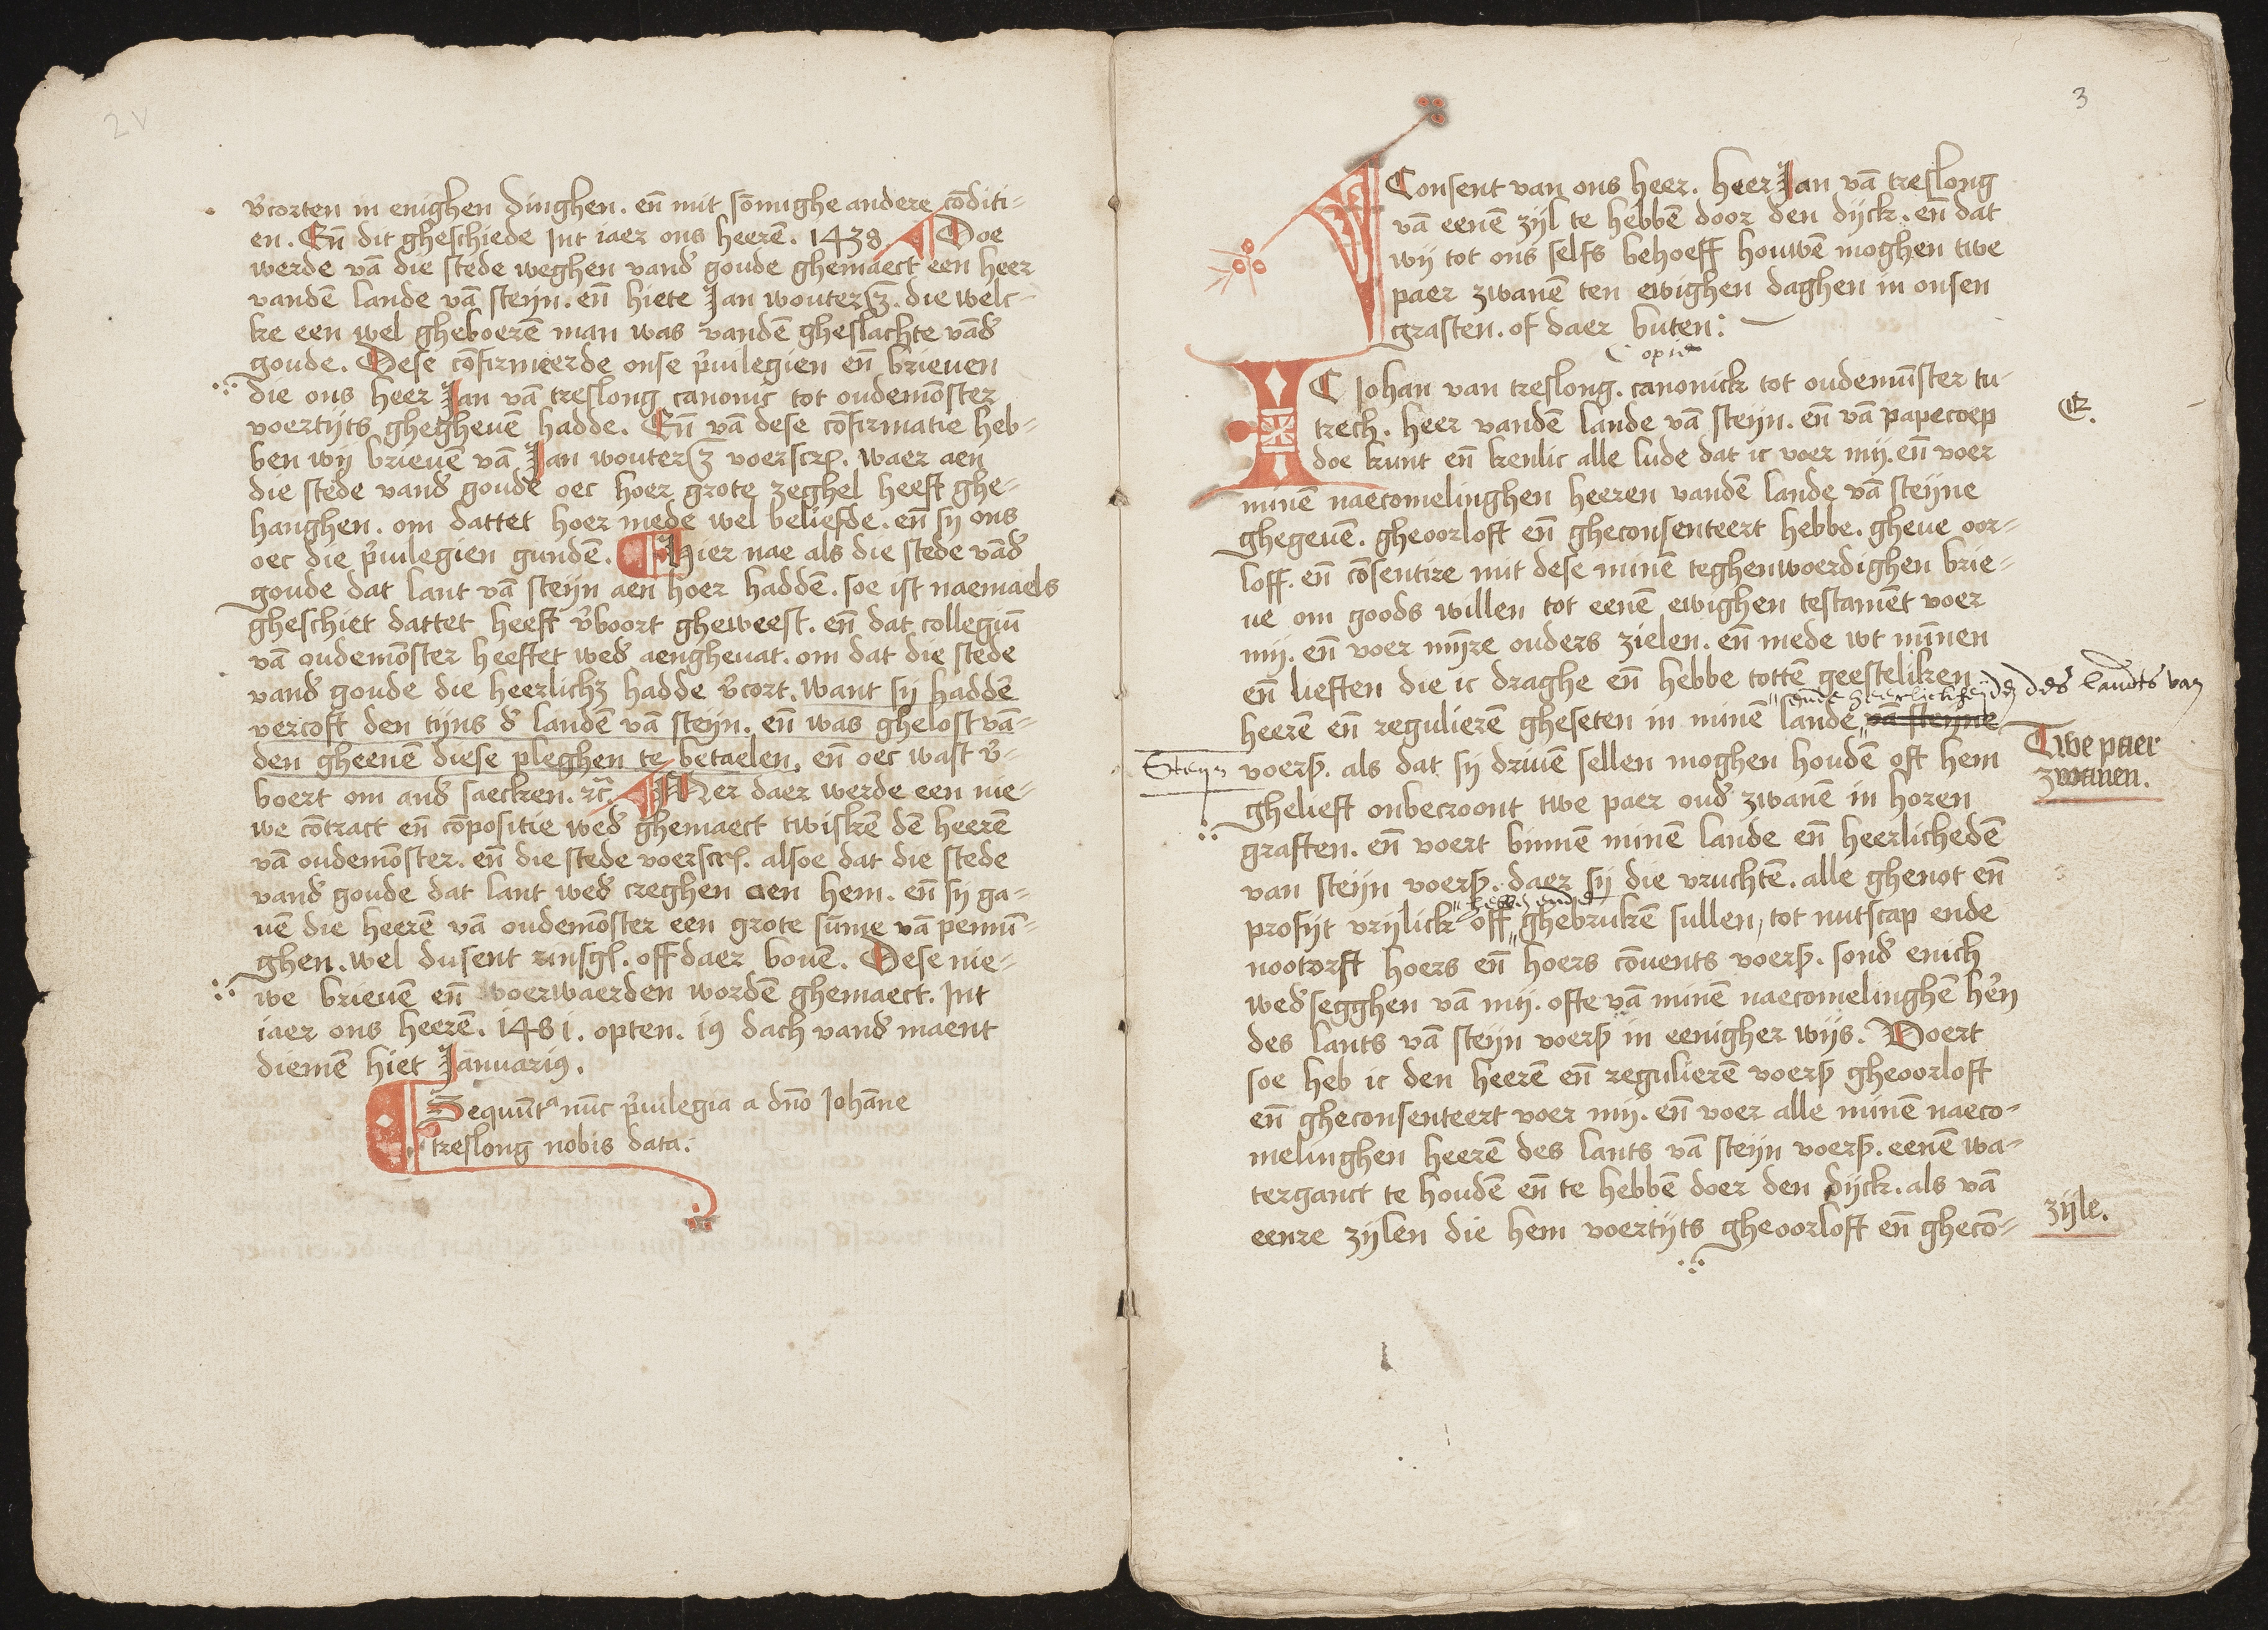 2v
v̄corten in enighen dinghen. en̄ mit sōmighe andere cōditi-
en. En̄ dit gheschiede Int iaer ons heerē. 1438 Doe
werde vā die stede weghen vand' goude ghemaect een heer
vandē lande vā steyn. en̄ hiete Jan wouterſz. die welc-
ke een wel gheboerē man was vandē gheslachte vād'
goude. Dese cōfirmeerde onse p'uilegien en̄ brieuen
die ons heer Jan vā treslong canonic tot oudemōster
voertijts ghegheuē hadde. En̄ vā dese cōfirmatie heb-
ben wij brieuē vā Jan wouterſz voerscr. waer aen
die stede vand' goude oec hoer grote zeghel heeft ghe-
hanghen. om dattet hoer mede wel beliefde. en̄ sy ons
oec die p'uilegien gundē. Hier nae als die stede vād'
goude dat lant vā steyn aen hoer haddē. soe ist naemaels
gheschiet dattet heeft v̄boort gheweest. en̄ dat collegiū
vā oudemōster heeftet wed' aengheuat. om dat die stede
vand' goude die heerlichz hadde v̄cort. want sy haddē
vercoft den tijns d' landē vā steyn. en̄ was ghelost vā-
den gheenē diese pleghen te betaelen. en̄ oec wast v̄-
boert om and' saecken. ⁊c̄. Mer daer werde een nie-
we cōtract en̄ cōpositie wed' ghemaect twiskē dē heerē
vā oudemōster. en̄ die stede voerscr. alsoe dat die stede
vand' goude dat lant wed' creghen aen hem. en̄ sy ga-
uē die heerē vā oudemōster een grote sūme vā pennī-
ghen. wel dusent rinsgl. off daer bouē. Dese nie-
we brieuē en̄ voerwaerden wordē ghemaect. Int
iaer ons heerē. 1481. opten. 19 dach vand' maent
diemē hiet Januariꝰ.
Sequūt' nūc p'uilegia a dn̄o Johāne
treslong nobis data.
3
Consent van ons heer. heer Jan vā treslong
vā eenē zyl te hebbē door den dijck. en̄ dat
wij tot ons selfs behoeff houwē moghen twe
paer zwanē ten ewighen daghen in onsen
grasten. of daer buten:
Copia
IC Johan van treslong. canonick tot oudemūster tu-
trech. heer vandē lande vā steyn. en̄ vā papecoep
doe kunt en̄ kenlic alle lude dat ic voer mij. en̄ voer
minē naecomelinghen heeren vandē lande vā steyne
ghegeuē. gheoorloft en̄ gheconsenteert hebbe. gheue oor-
loff. en̄ cōsentire mit dese minē teghenwoerdighen brie-
ue om goods willen tot eenē ewighen testamēt voer
mij. en̄ voer mijre ouders zielen. en̄ mede wt minnen
en̄ lieften die ic draghe en̄ hebbe tottē geesteliken
ende heerlickheyden des landts van
heerē en̄ regulierē gheseten in minē lande vā steyne
Steyn
voerꝭ. als dat sy driuē sellen moghen houdē oft hem
Twe paer
zwanen.
ghelieft onbecroont twe paer oud' zwanē in horen
graften. en̄ voert binnē minē lande en̄ heerlichedē
van steyn voerꝭ. daer sij die vruchtē. alle ghenot en̄
hebben ende
profijt vrijlick off ghebrukē sullen, tot nutscap ende
nootorft hoers en̄ hoers cōuents voerꝭ. sond' enich
wed'segghen vā mij. ofte vā minē naecomelinghē hēn
des lants vā steyn voerꝭ in eenigher wijs. Voert
soe heb ic den heerē en̄ regulierē voerꝭ gheoorloft
en̄ gheconsenteert voer mij. en̄ voer alle minē naeco-
melinghen heerē des lants vā steyn voerꝭ. eenē wa-
terganct te houdē en̄ te hebbē doer den dijck. als vā
zijle.
eenre zylen die hem voertijts gheoorloft en̄ ghecō-